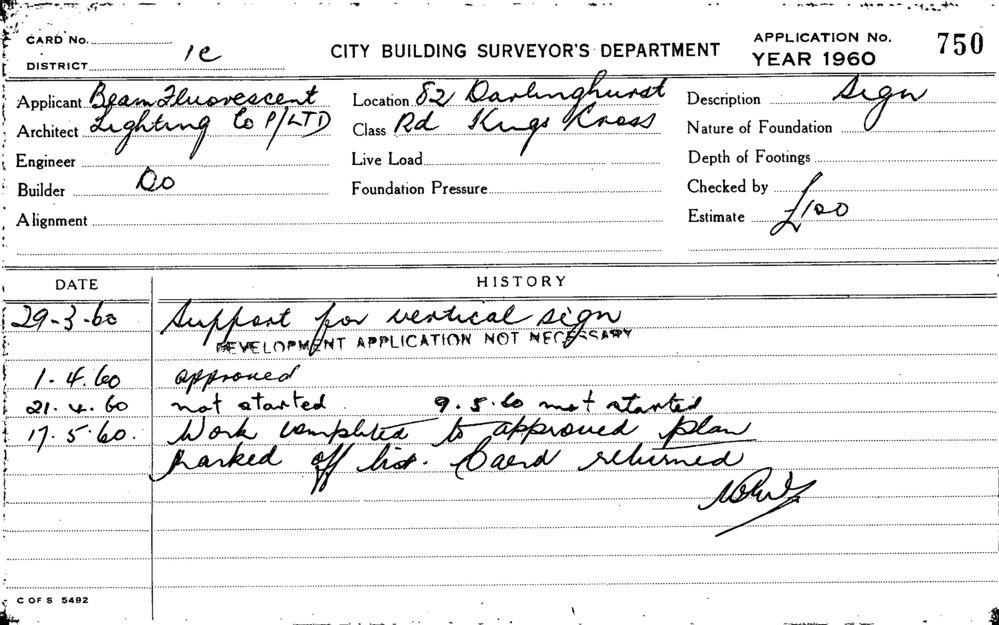 CARD No.
DISTRICT 1C
CITY BUILDING SURVEYOR'S DEPARTMENT
APPLICATION No. 750
YEAR 1960
Applicant Beam Fluorescent
Architect Lighting Co P/LTD
Engineer
Builder Do
Alignment
Location 82 Darlinghurst
Class Rd Kings Cross
Live Load
Foundation Pressure
Description Sign
Nature of Foundation
Depth of Footings
Checked by
Estimate £100
DATE HISTORY
29-3-60 Support for vertical sign
DEVELOPMENT APPLICATION NOT NECESSARY
1.4.60 approved
21.4.60 not started 9.5.60 not started
17.5.60. Work completed to approved plan
marked off list. Card returned
C OF S 5492